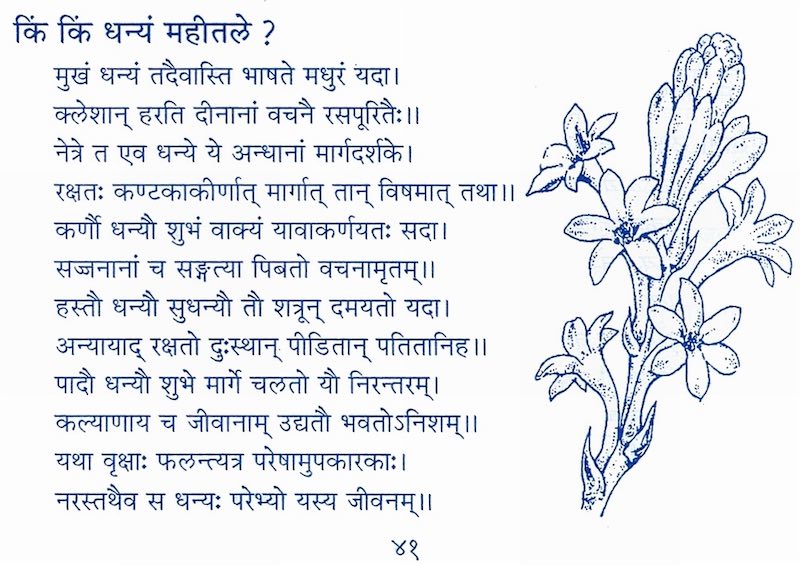 किं किं धन्यं महीतले ?
मुखं धन्यं तदैवास्ति भाषते मधुरं यदा।
क्लेशान् हरति दीनानां वचनै रसपूरितैः।।
नेत्रे त एव धन्ये ये अन्धानां मार्गदर्शके।
रक्षतः कण्टकाकीर्णात् मार्गात् तान् विषमात् तथा।।
कर्णौ धन्यौ शुभं वाक्यं यावाकर्णयतः सदा।
सज्जनानां च सङ्गत्या पिबतो वचनामृतम्।।
हस्तौ धन्यौ सुधन्यौ तौ शत्रून् दमयतो यदा।
अन्यायाद् रक्षतो दुःस्थान् पीडितान् पतितानिह।।
पादौ धन्यौ शुभे मार्गे चलतो यौ निरन्तरम्।
कल्याणाय च जीवानाम् उद्यतौ भवतोऽनिशम्।।
यथा वृक्षाः फलन्त्यत्र परेषामुपकारकाः।
नरस्तथैव स धन्यः परेभ्यो यस्य जीवनम्।।
४१